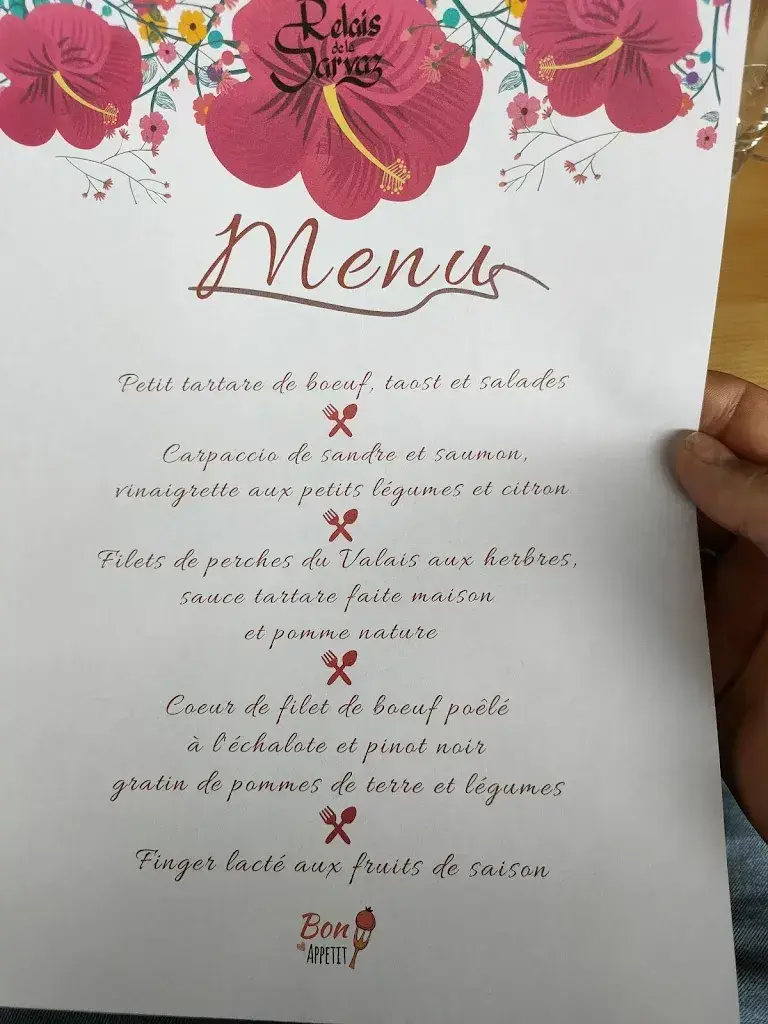 Relais
de la
Sarvaz
Menu
Petit tartare de boeuf, taost et salades
Carpaccio de sandre et saumon,
vinaigrette aux petits légumes et citron
Filets de perches du Valais aux herbres,
sauce tartare faite maison
et pomme nature
Coeur de filet de boeuf poêlé
à l'échalote et pinot noir
gratin de pommes de terre et légumes
Finger lacté aux fruits de saison
Bon
APPETIT